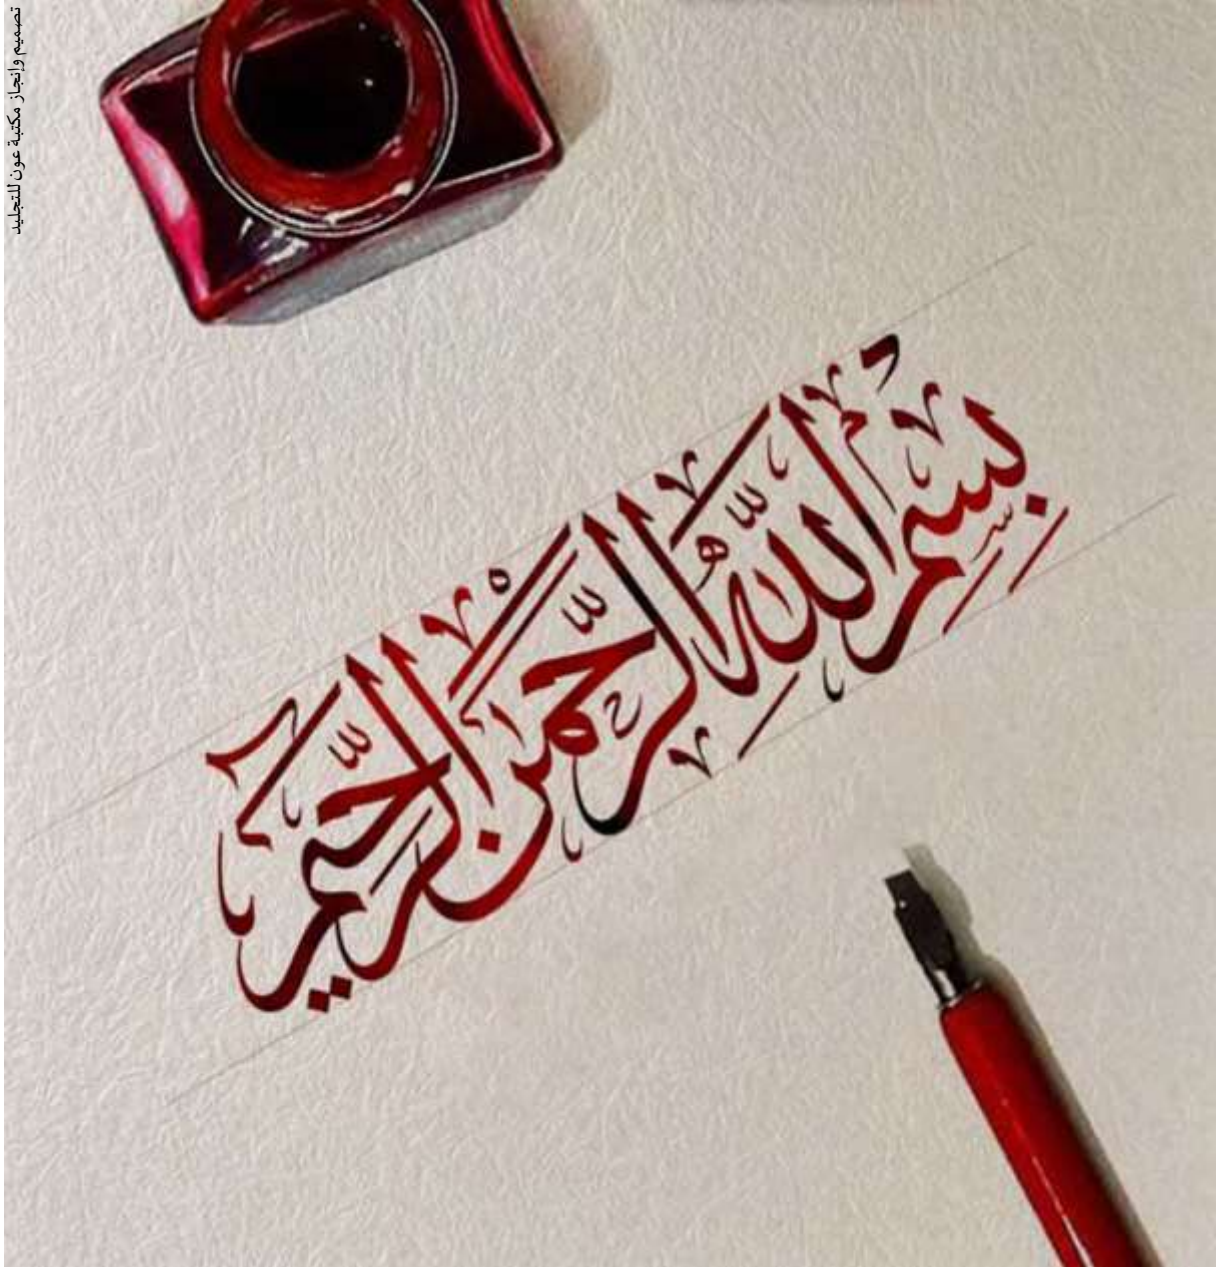 تصميم وإنجاز مكتبة عون للتجليد
بِسْمِ اللَّهِ الرَّحْمنِ الرَّحِيمِ